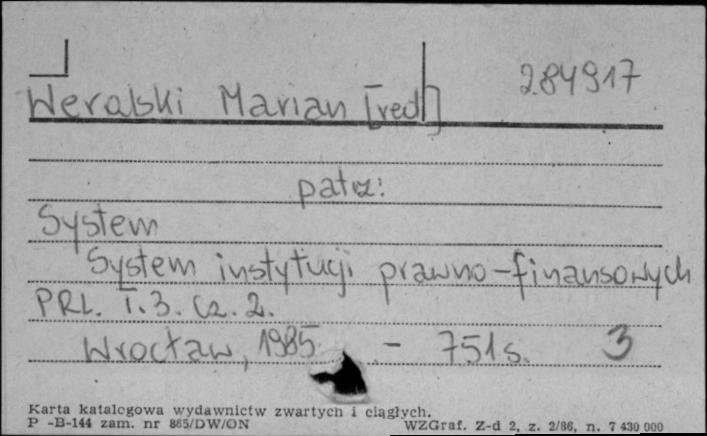 284917
Weralski Marian [red]
patrz:
System
System instytucji prawno-finansowych
PRL. T.3. Cz. 2.
Wrocław, 1985. - 751 s. 3
Karta katalogowa wydawnictw zwartych i ciągłych.
P -B-144 zam. nr 865/DW/ON WZGraf. Z-d 2, z. 2/86, n. 7 430 000